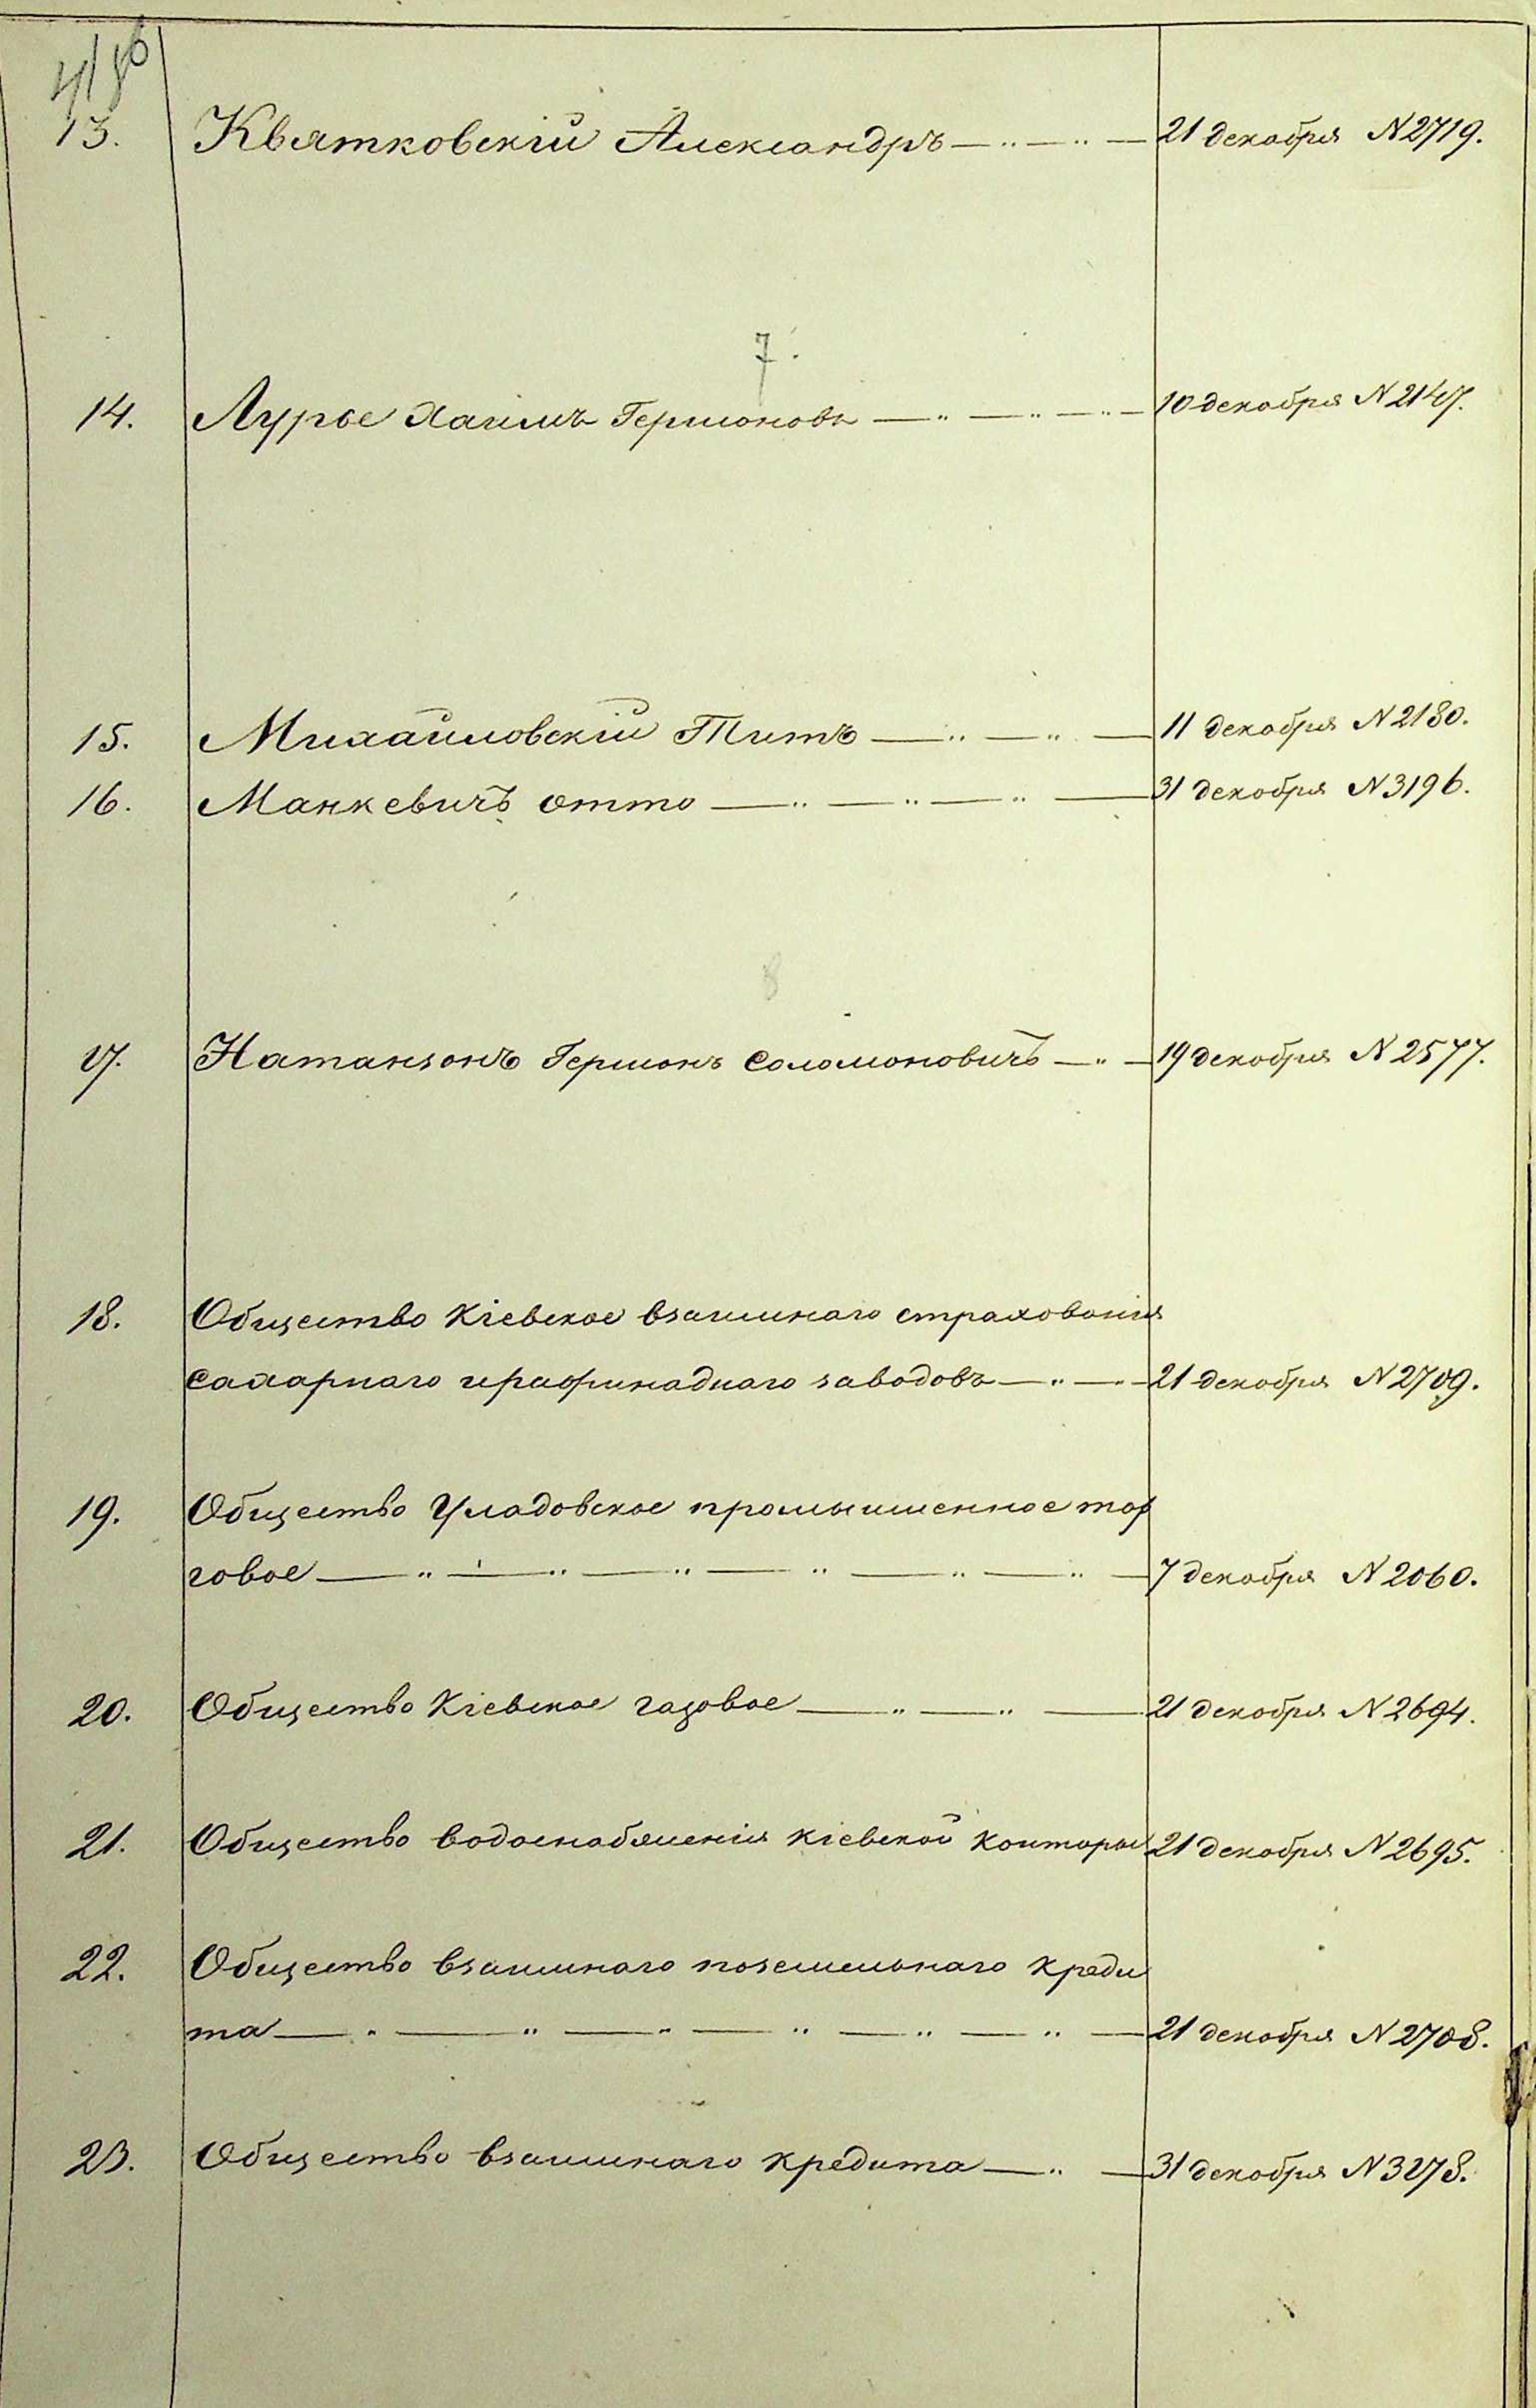 13. Квятковскій Александръ — „ — „ — 21 декабря N 2719.
7.
14. Лурье Хаимъ Гершоновъ — „ — „ — „ — 10 декабря N 2147.
15. Михайловскій Титъ — „ — „ — 11 декабря N 2180.
16. Манкевичъ Отто — „ — „ — „ — 31 декабря N 3196.
8
17. Натансонъ Гершонъ Соломоновичъ — „ — 19 декабря N 2577.
18. Общество Кіевское взаимнаго страхованія
сахарнаго и рафинаднаго заводовъ — „ — „ — 21 декабря N 2709.
19. Общество Уладовское промышленное тор
говое — „ — „ — „ — „ — „ — „ — 7 декабря N 2060.
20. Общество Кіевское газовое — „ — „ — 21 декабря N 2694.
21. Общество водоснабженія Кіевской конторы 21 декабря N 2695.
22. Общество взаимнаго поземельнаго креди
та — „ — „ — „ — „ — „ — „ — 21 декабря N 2708.
23. Общество взаимнаго кредита — „ — 31 декабря N 3278.